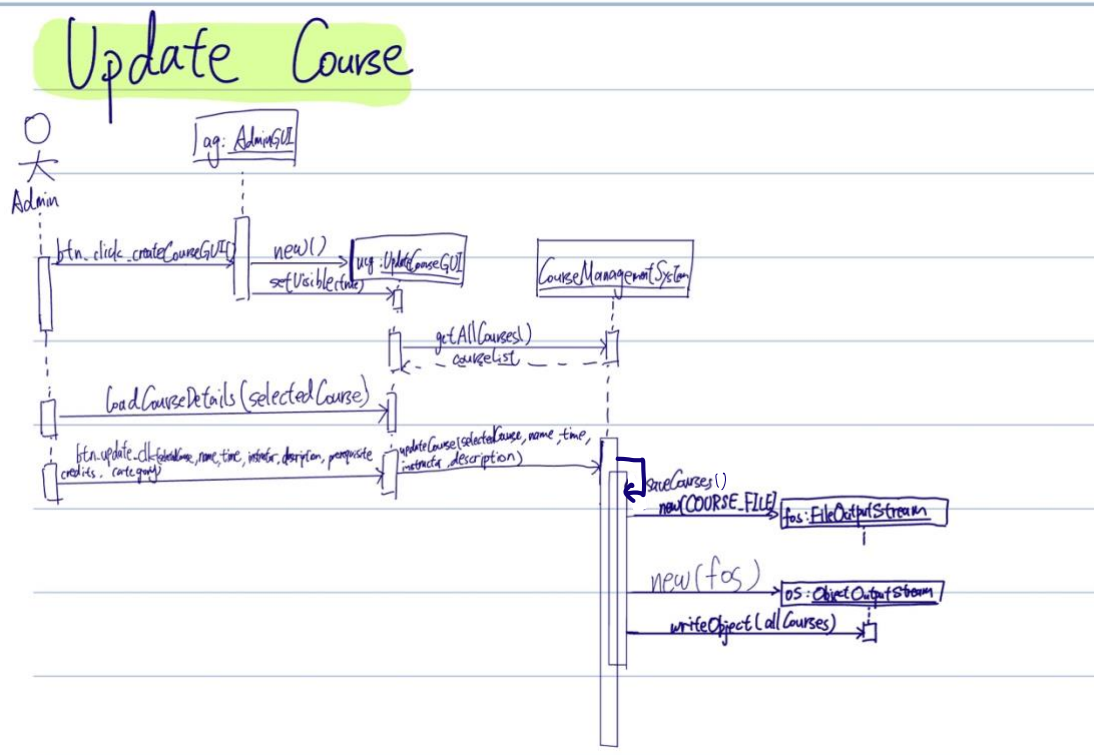 Update Course
ag: AdminGUI
Admin
btn_click_createCourseGUI()
new()
ucg: UpdateCourseGUI
setVisible(true)
CourseManagementSystem
getAllCourses()
courseList
loadCourseDetails(selectedCourse)
btn_update_clk(selectedCourse, name, time, instructor, description, prerequisite
credits, category)
updateCourse(selectedCourse, name, time,
instructor, description)
saveCourses()
new(COURSE_FILE)
fos: FileOutputStream
new(fos)
os: ObjectOutputStream
writeObject(allCourses)